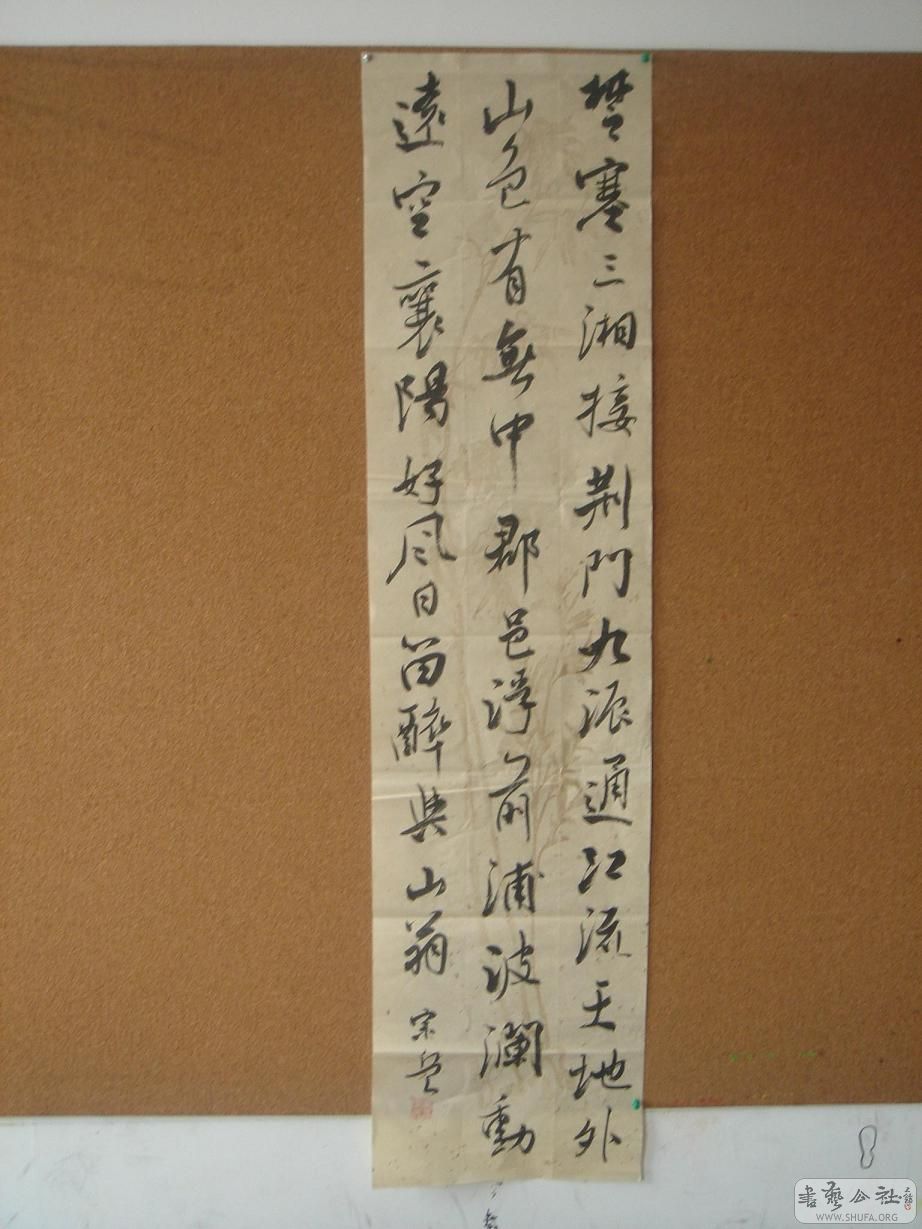 楚塞三湘接荆門九派通江流天地外
山色有無中郡邑浮前浦波瀾動
遠空襄陽好風日留醉與山翁
書藝公社
WWW.SHUFA.ORG